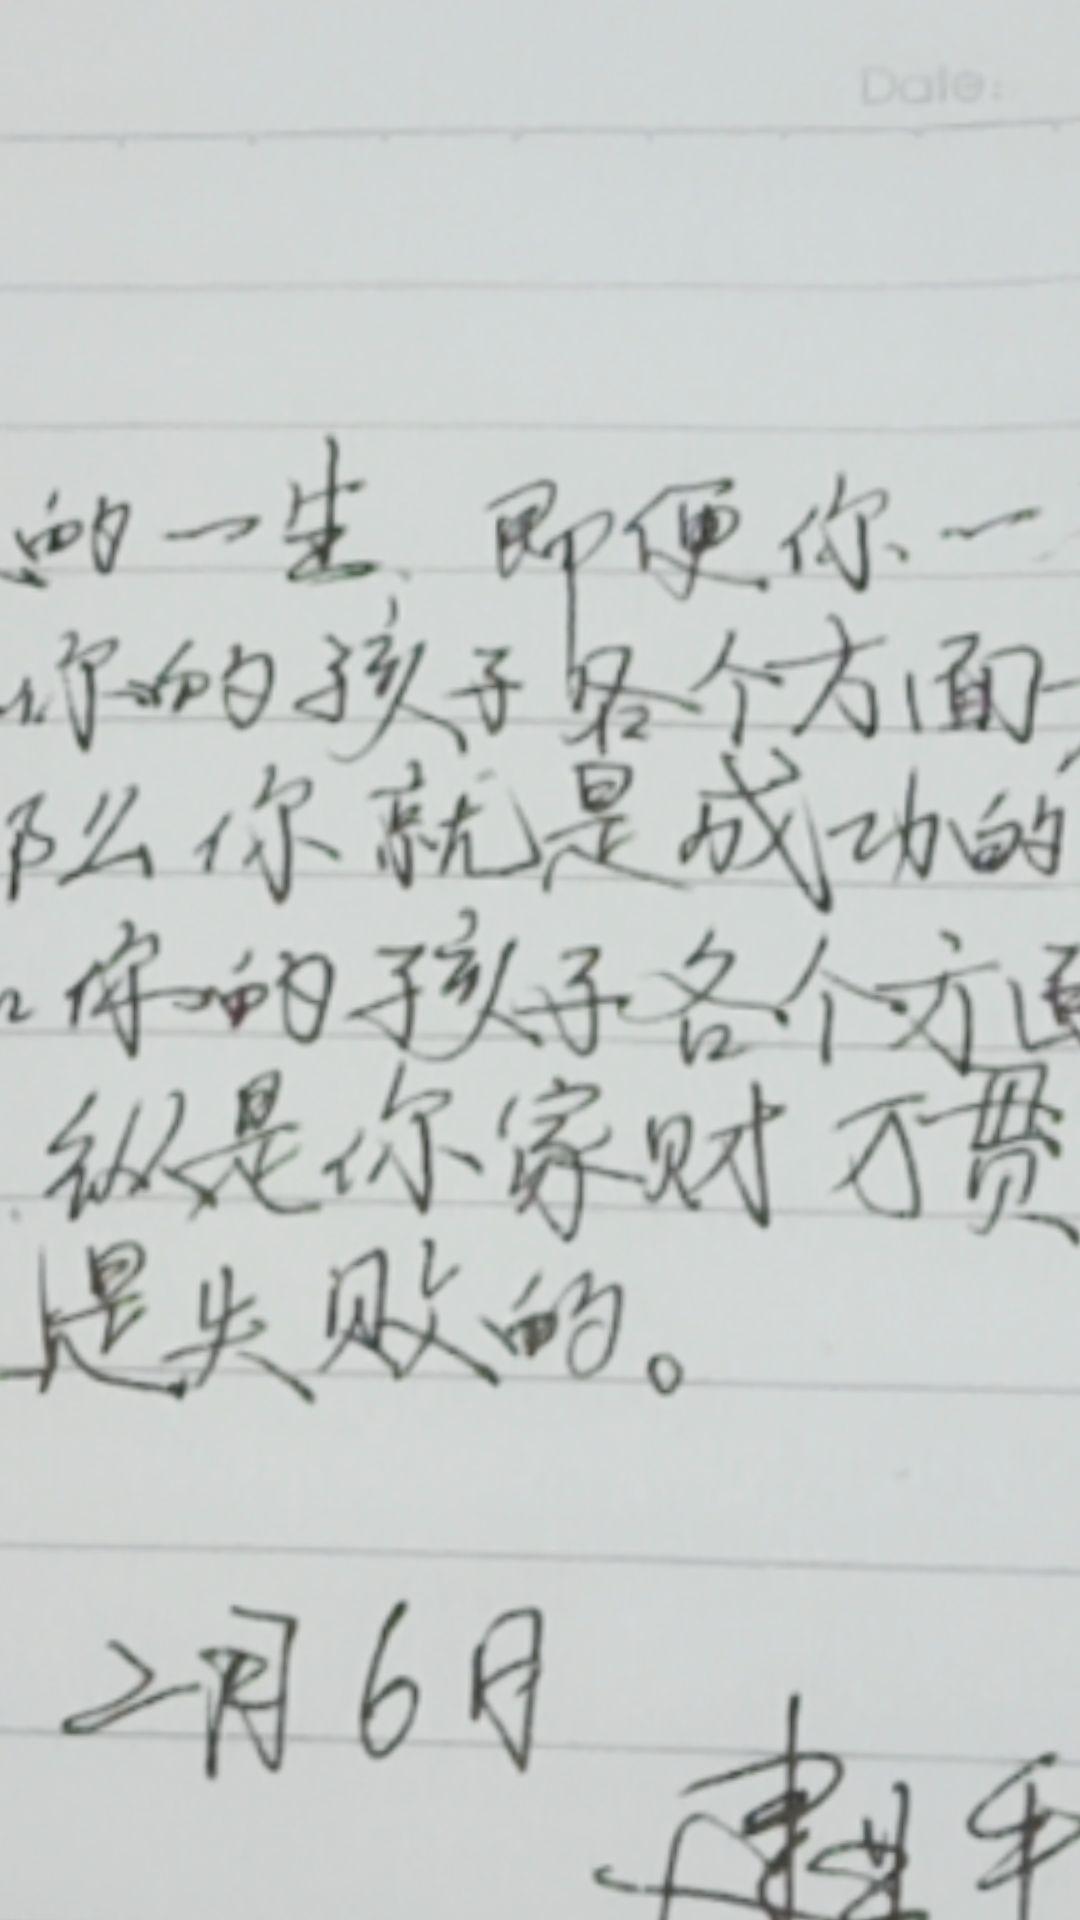 Date:
的一生，即便你一
你的孩子各个方面
那么你就是成功的
你的孩子各个方面
纵是你家财万贯
是失败的。
2月6日